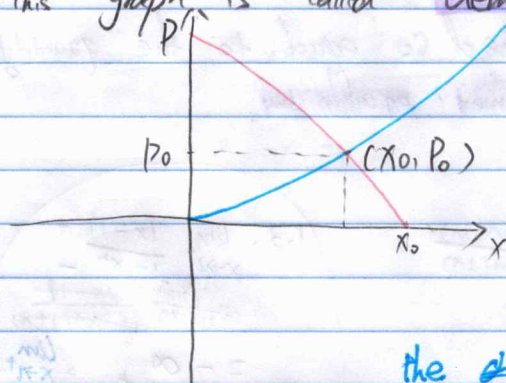 this graph is called dem
P
P₀ (x₀, P₀)
x₀ x
the